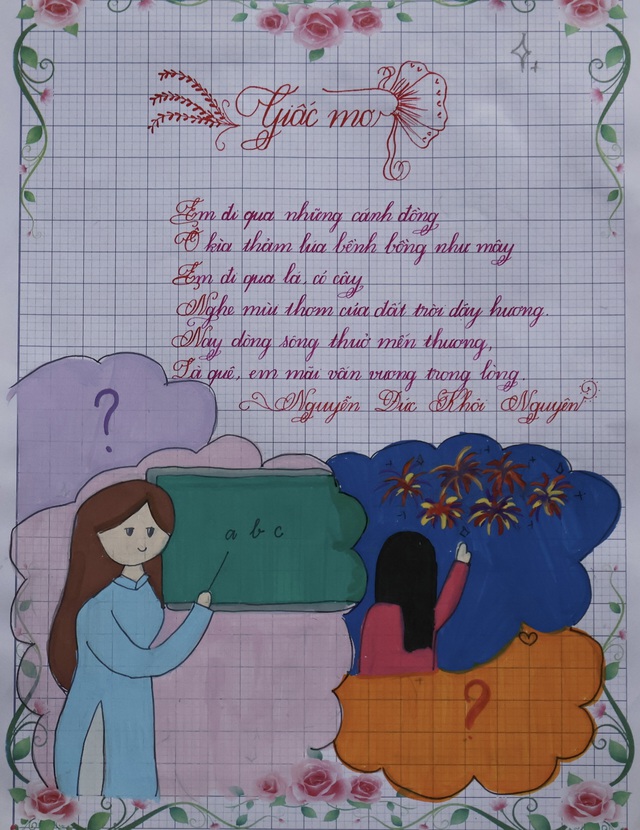 Giấc mơ
Em đi qua những cánh đồng
Ồ kìa thảm lúa bềnh bồng như mây
Em đi qua lá, có cây
Nghe mùi thơm của đất trời dây hương.
Này dòng sông thuở mến thương,
Xa quê, em mãi vấn vương trong lòng.
Nguyễn Đức Khôi Nguyên
?
a b c
?